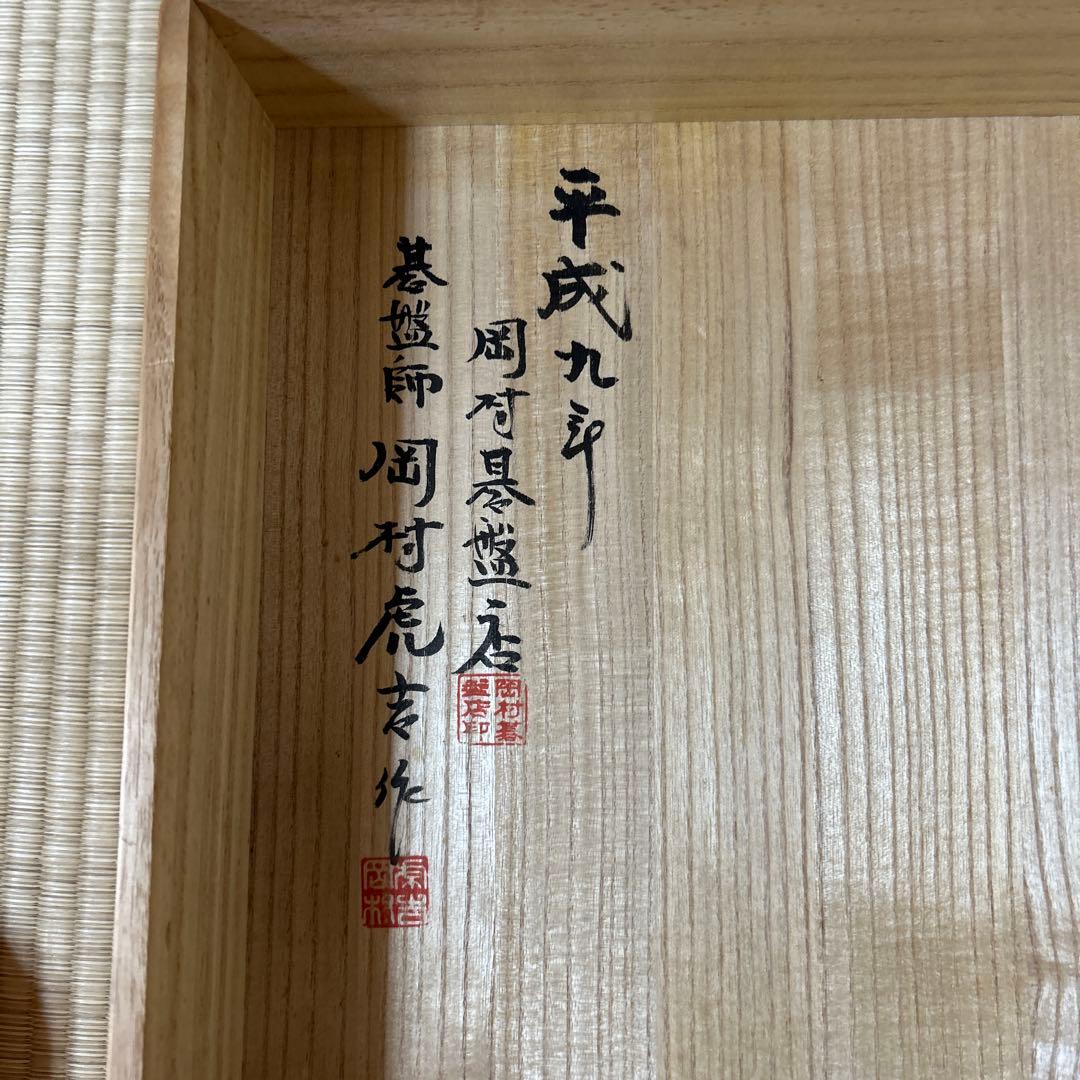 平成九年
岡村碁盤店
岡村碁
盤店印
碁盤師 岡村虎吉作